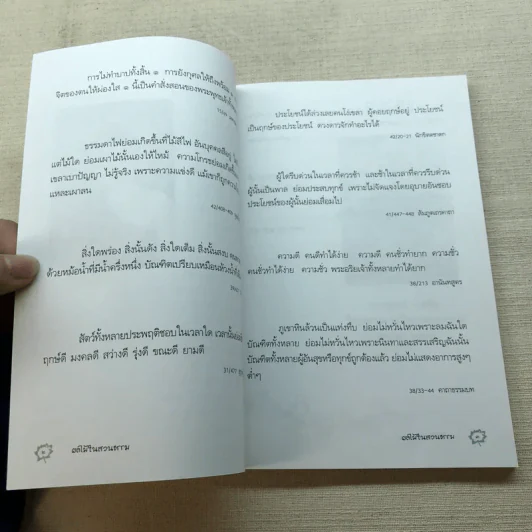 การไม่ทำบาปทั้งสิ้น ๑ การยังกุศลให้ถึงพร้อม
จิตของตนให้ผ่องใส ๑ นี้เป็นคำสั่งสอนของพระพุทธเจ้า
ธรรมดาไฟย่อมเกิดขึ้นที่ไม้สีไฟ อันบุคคลสีอยู่
แต่ไม้ใด ย่อมเผาไม้นั้นเองให้ไหม้ ความโกรธย่อมเกิดขึ้น
เขลาเบาปัญญา ไม่รู้จริง เพราะความแข่งดี แม้เขาก็ถูก
แหละเผาลน
สิ่งใดพร่อง สิ่งนั้นดัง สิ่งใดเต็ม สิ่งนั้นสงบ
ด้วยหม้อน้ำที่มีน้ำครึ่งหนึ่ง บัณฑิตเปรียบเหมือนห้วงน้ำ
สัตว์ทั้งหลายประพฤติชอบในเวลาใด เวลานั้น
ฤกษ์ดี มงคลดี สว่างดี รุ่งดี ขณะดี ยามดี
อตฺถิวันสวนธรรม
ประโยชน์ได้ล่วงเลยคนโง่เขลา ผู้คอยฤกษ์อยู่ ประโยชน์
เป็นฤกษ์ของประโยชน์ ดวงดาวจักทำอะไรได้
นักขัตตชาดก
ผู้ใดรีบด่วนในเวลาที่ควรช้า และช้าในเวลาที่ควรรีบด่วน
ผู้นั้นเป็นพาล ย่อมประสบทุกข์ เพราะไม่จัดแจงโดยอุบายอันชอบ
ประโยชน์ของผู้นั้นย่อมเสื่อมไป
ความดี คนดีทำได้ง่าย ความดี คนชั่วทำยาก ความชั่ว
คนชั่วทำได้ง่าย ความชั่ว พระอริยเจ้าทั้งหลายทำได้ยาก
38/213 อานันทสูตร
ภูเขาหินล้วนเป็นแท่งทึบ ย่อมไม่หวั่นไหวเพราะลมฉันใด
บัณฑิตทั้งหลาย ย่อมไม่หวั่นไหวเพราะนินทาและสรรเสริญฉันนั้น
บัณฑิตทั้งหลายผู้อันสุขหรือทุกข์ถูกต้องแล้ว ย่อมไม่แสดงอาการสูงๆ
ต่ำๆ
38/33-44 คาถาธรรมบท